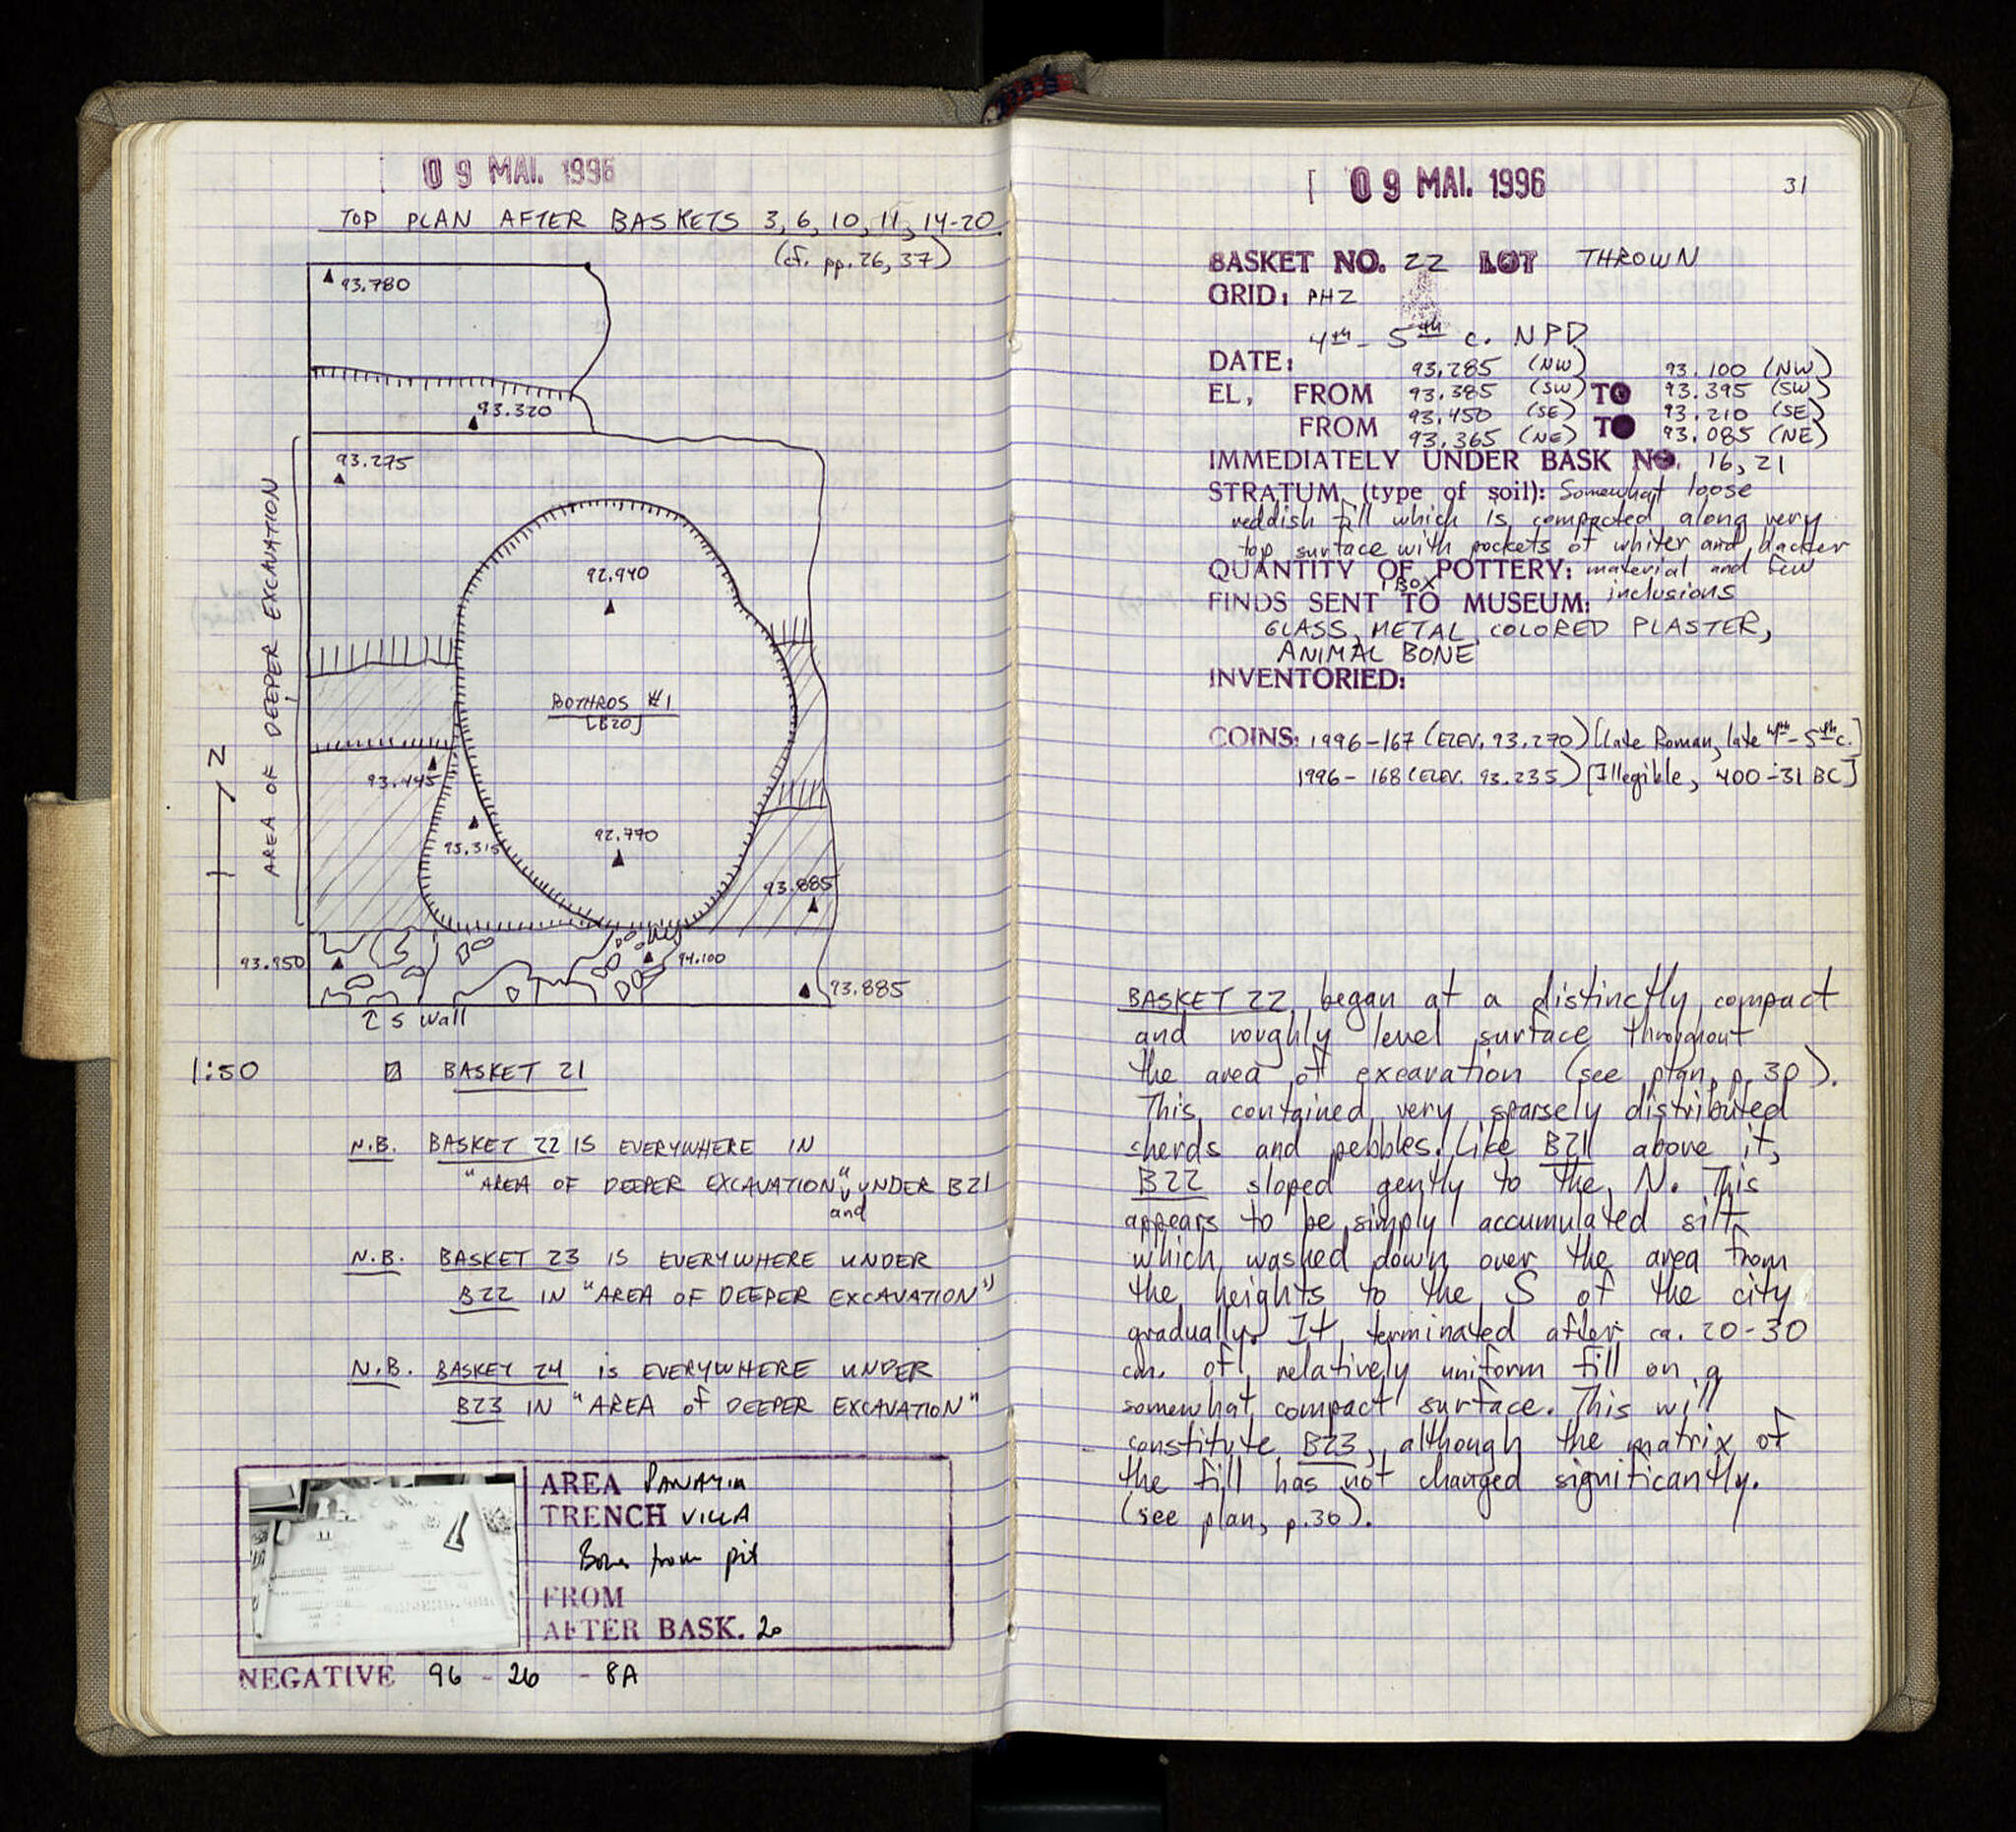 09 MAI. 1996
TOP PLAN AFTER BASKETS 3, 6, 10, 11, 14-20
(cf. pp. 26, 37)
93.780
93.320
93.275
AREA OF DEEPER EXCAVATION
92.940
BOTHROS #1
[B20]
N
93.445
93.315
92.770
93.885
93.950
94.100
93.885
S wall
1:50
BASKET 21
N.B. BASKET 22 IS EVERYWHERE IN
"AREA OF DEEPER EXCAVATION" UNDER B21
and
N.B. BASKET 23 IS EVERYWHERE UNDER
B22 IN "AREA OF DEEPER EXCAVATION"
N.B. BASKET 24 is EVERYWHERE UNDER
B23 IN "AREA of DEEPER EXCAVATION"
AREA PANAYIA
TRENCH VILLA
from pit
FROM
AFTER BASK. 20
NEGATIVE 96 - 26 - 8A
09 MAI. 1996
31
BASKET NO. 22 LOT THROWN
GRID: PHZ
4th - 5th c. NPD
DATE:
93.285 (NW) 93.100 (NW)
EL, FROM 93.385 (SW) TO 93.395 (SW)
93.450 (SE) 93.210 (SE)
FROM 93.365 (NE) TO 93.085 (NE)
IMMEDIATELY UNDER BASK NO. 16, 21
STRATUM (type of soil): Somewhat loose
reddish fill which is compacted along very
top surface with pockets of whiter and blacker
QUANTITY OF POTTERY: material and few
1 BOX
FINDS SENT TO MUSEUM: inclusions
GLASS, METAL, COLORED PLASTER,
ANIMAL BONE
INVENTORIED:
COINS: 1996-167 (ELEV. 93.270) [Late Roman, late 4th-5th c.]
1996-168 (ELEV. 93.235) [Illegible, 400-31 BC]
BASKET 22 began at a distinctly compact
and roughly level surface throughout
the area of excavation (see plan, p. 30).
This contained very sparsely distributed
sherds and pebbles. Like B21 above it,
B22 sloped gently to the N. This
appears to be simply accumulated silt
which washed down over the area from
the heights to the S of the city
gradually. It terminated after ca. 20-30
cm. of relatively uniform fill on a
somewhat compact surface. This will
constitute B23, although the matrix of
the fill has not changed significantly.
(see plan, p. 30).